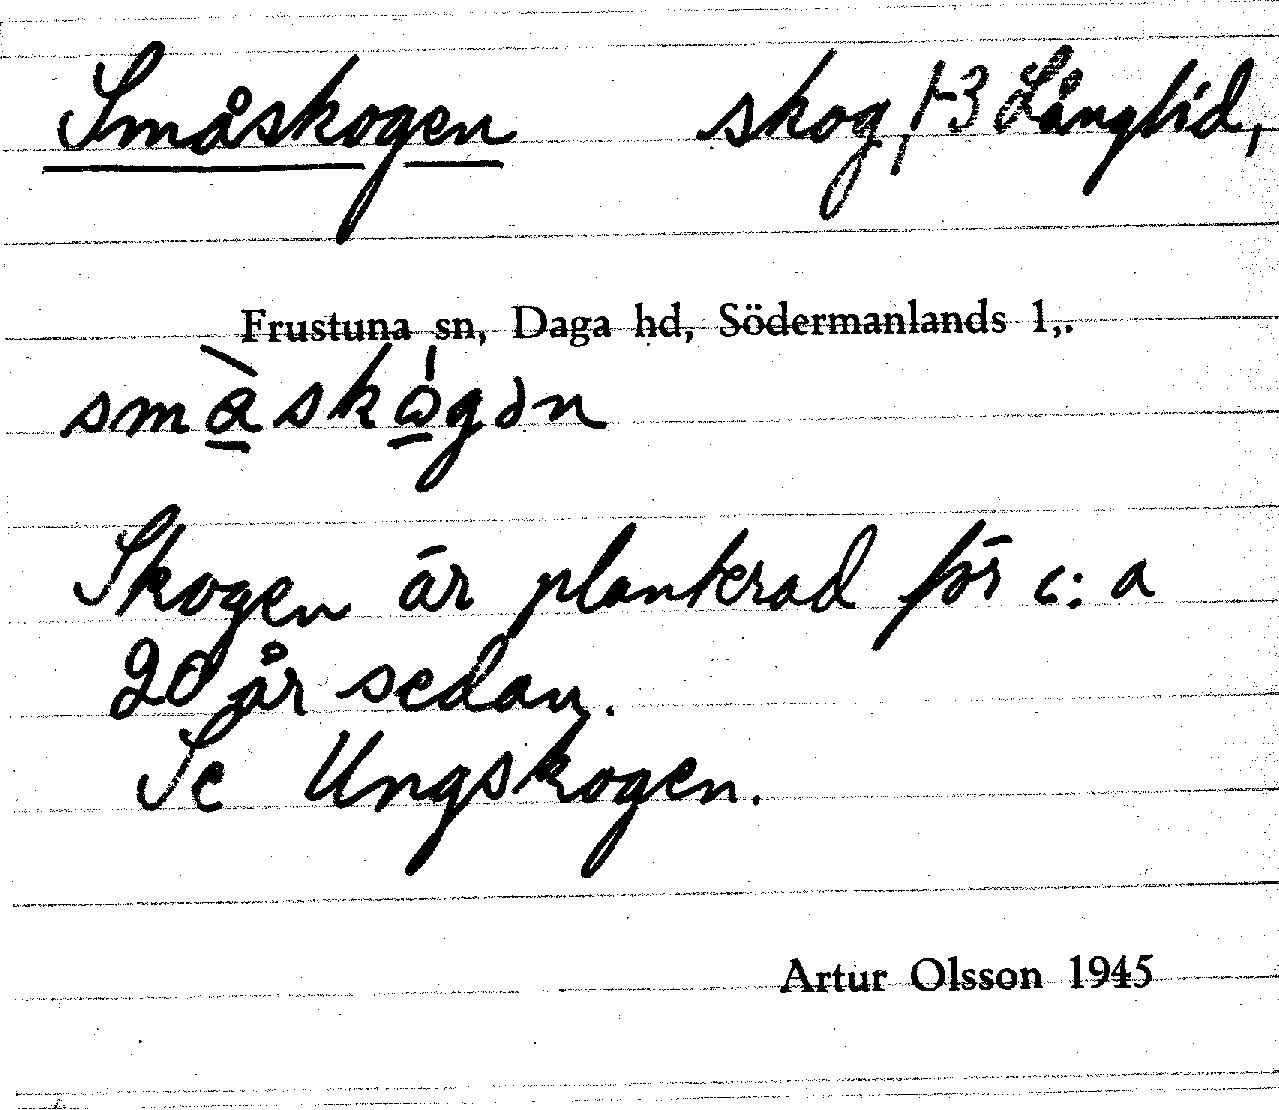 Småskogen skog, 1-3 Långlid,
Frustuna sn, Daga hd, Södermanlands l,.
småskògən
Skogen är planterad för c:a
20 år sedan.
Se Ungskogen.
Artur Olsson 1945